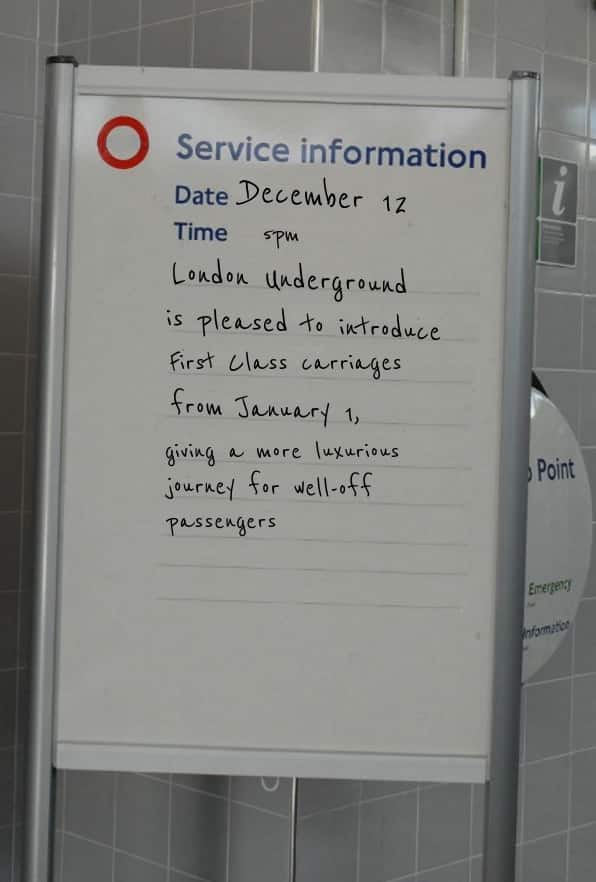 Service information
Date December 12
Time 5pm
London Underground
is pleased to introduce
First Class carriages
from January 1,
giving a more luxurious
journey for well-off
passengers
i
Point
Emergency
Information